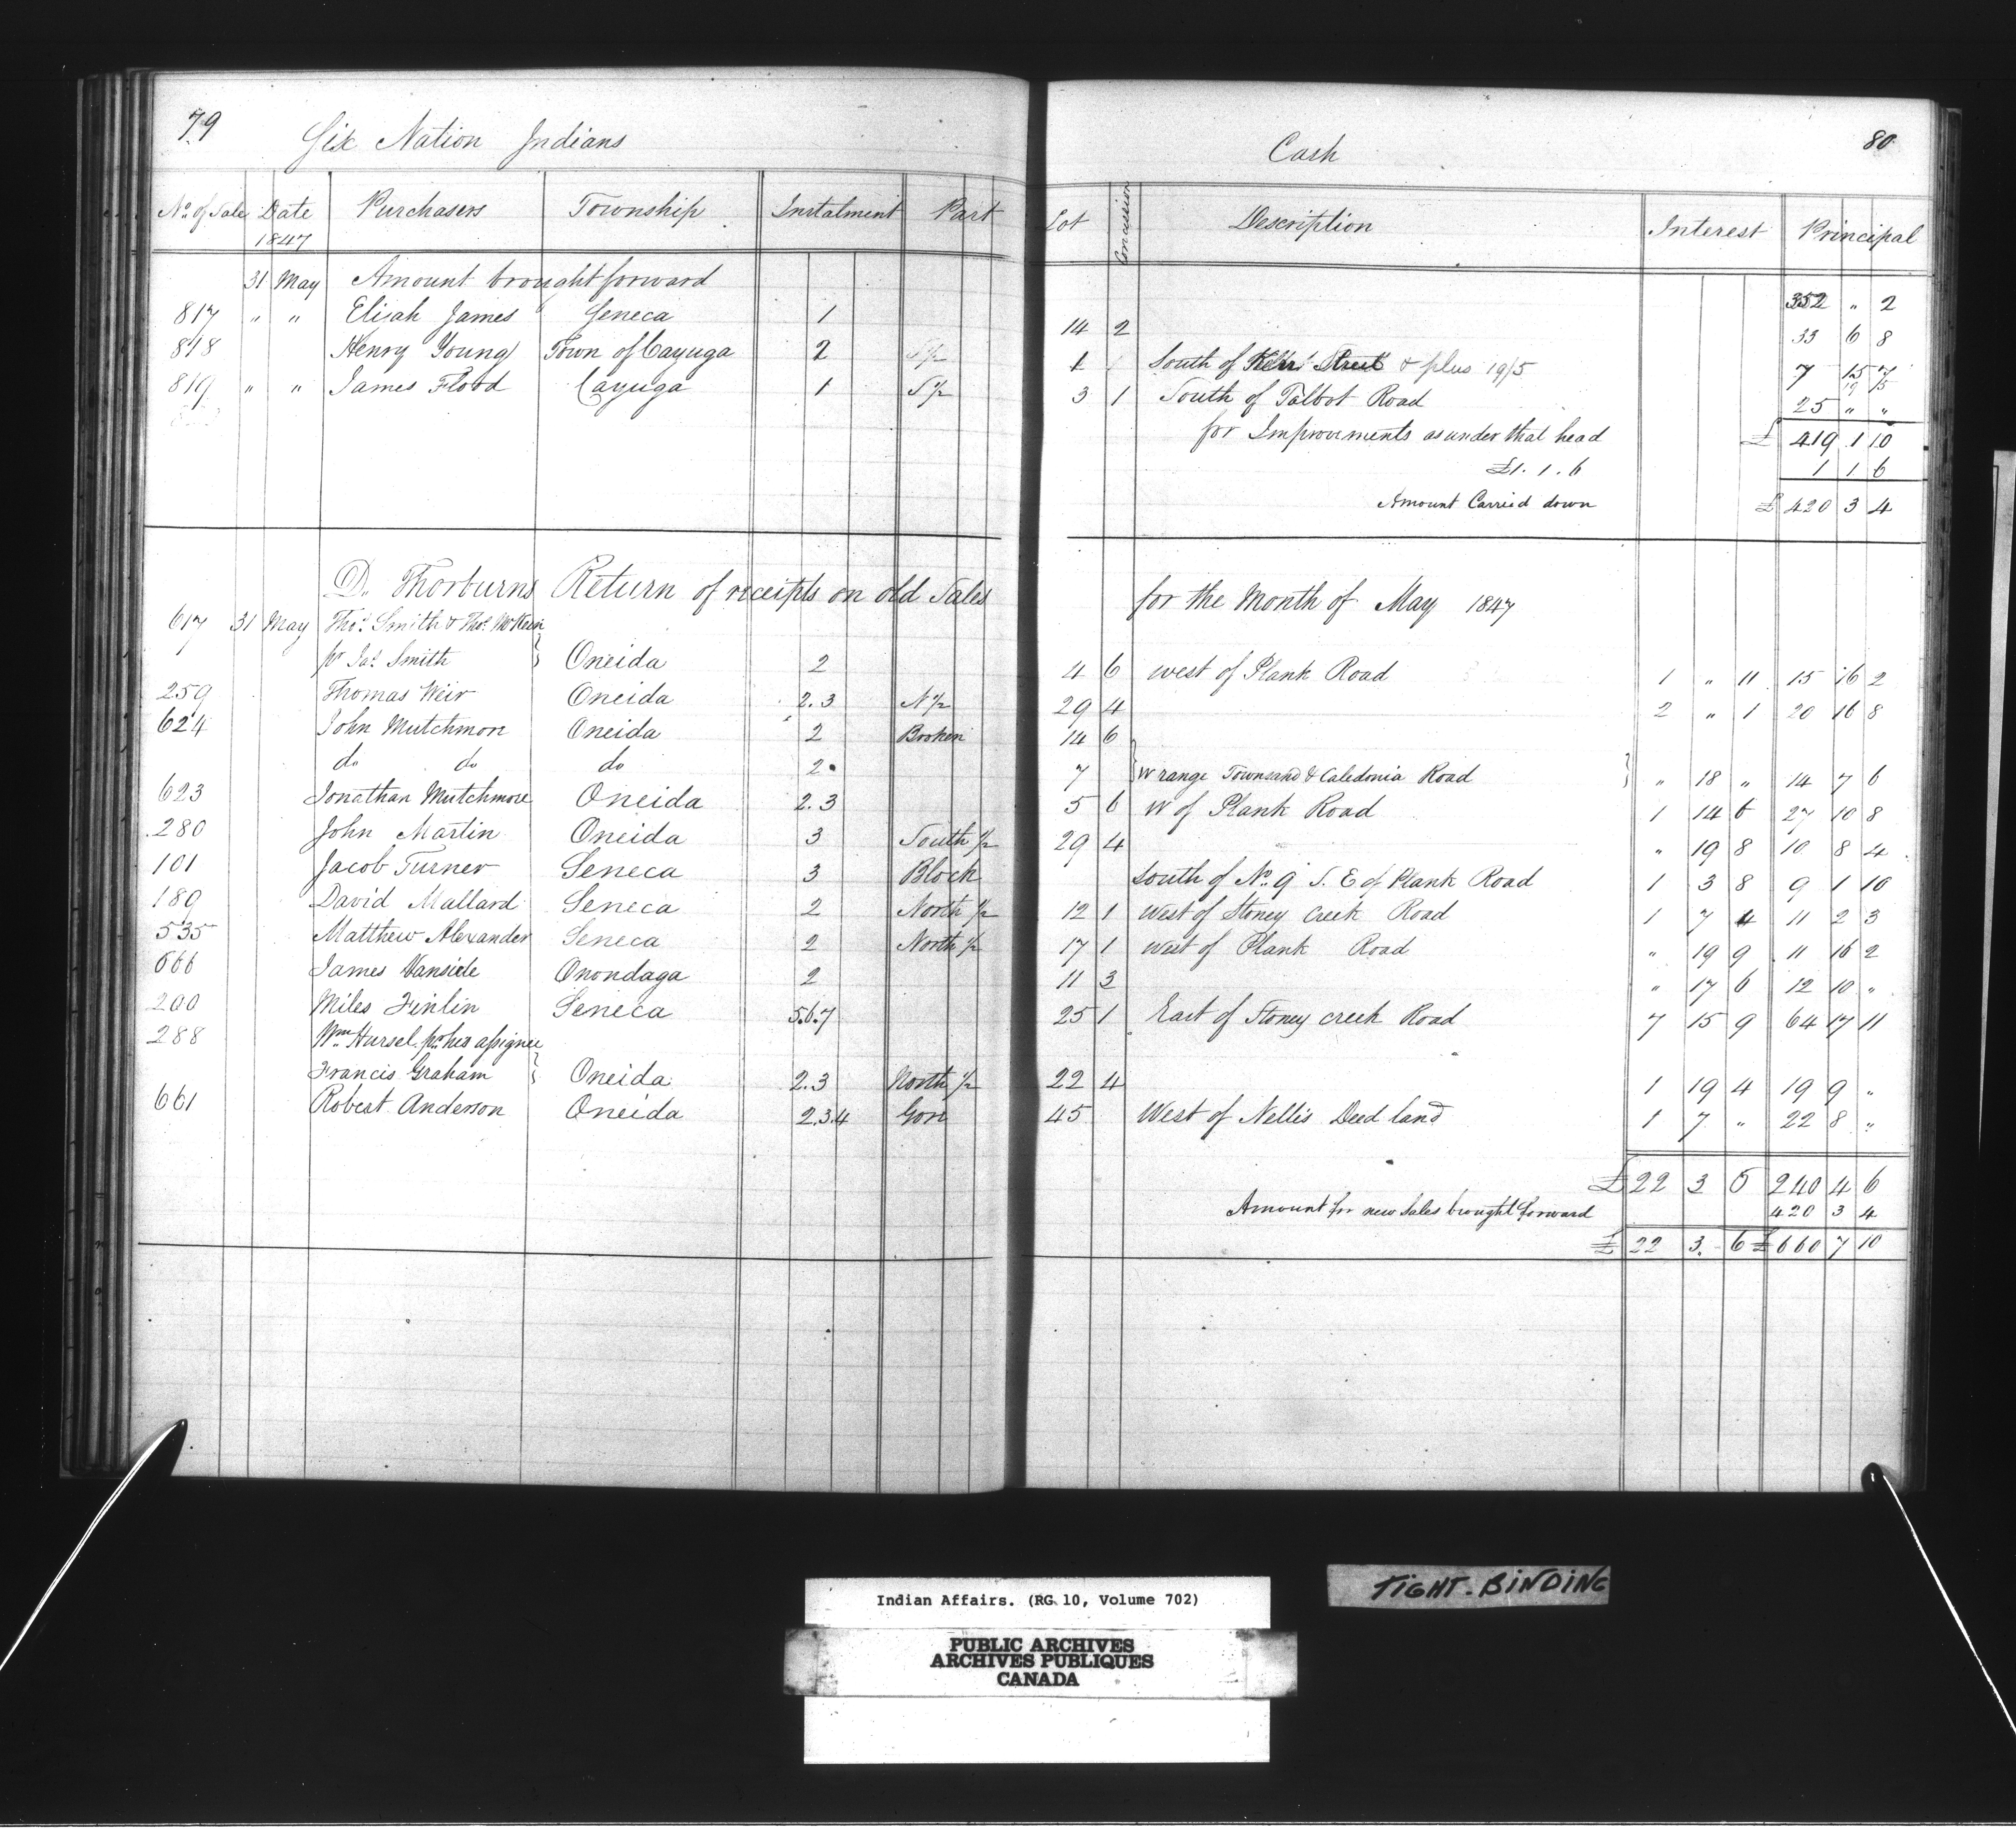 79 Six Nation Indians Cash 80
No. of Sale Date 1847 Purchasers Township Instalment Part Lot Concession Description Interest Principal
31 May Amount brought forward 352 " 2
817 " " Elijah James Seneca 1 14 2 33 6 8
818 Henry Young Town of Cayuga 2 S½ 1 1 South of Kerr Street & plus 19/5 7 15 7
19 5
819 " " James Flood Cayuga 1 S½ 3 1 South of Talbot Road 25 " "
for Improvements as under that head £ 419 1 10
£1. 1. 6 1 1 6
Amount Carried down £ 420 3 4
D. Thorburns Return of receipts on old Sales for the Month of May 1847
617 31 May Thos. Smith & Thos. McKeen
pr Jas. Smith } Oneida 2 4 6 west of Plank Road 1 " 11 15 16 2
259 Thomas Weir Oneida 2.3 N½ 29 4 2 " 1 20 16 8
624 John Mutchmore Oneida 2 Broken 14 6
do do do 2 7 } W range Townsand & Caledonia Road } " 18 " 14 7 6
623 Jonathan Mutchmore Oneida 2.3 5 6 W of Plank Road 1 14 6 27 10 8
280 John Martin Oneida 3 South ½ 29 4 " 19 8 10 8 4
101 Jacob Turner Seneca 3 Block South of No. 9 S. E of Plank Road 1 3 8 9 1 10
189 David Mallard Seneca 2 North ½ 12 1 West of Stoney Creek Road 1 7 4 11 2 3
535 Matthew Alexander Seneca 2 North ½ 17 1 west of Plank Road " 19 9 11 16 2
666 James Vansicle Onondaga 2 11 3 " 17 6 12 10 "
200 Miles Finlin Seneca 5.6.7 25 1 East of Stoney creek Road 7 15 9 64 17 11
288 Wm Hursel pr his assignee
Francis Graham } Oneida 2.3 North ½ 22 4 1 19 4 19 9 "
661 Robert Anderson Oneida 2.3.4 Gore 45 West of Nellis Deed land 1 7 " 22 8 "
£ 22 3 6 240 4 6
Amount for new sales brought forward 420 3 4
£ 22 3. 6 £ 660 7 10
Indian Affairs. (RG 10, Volume 702)
PUBLIC ARCHIVES
ARCHIVES PUBLIQUES
CANADA
TIGHT-BINDING